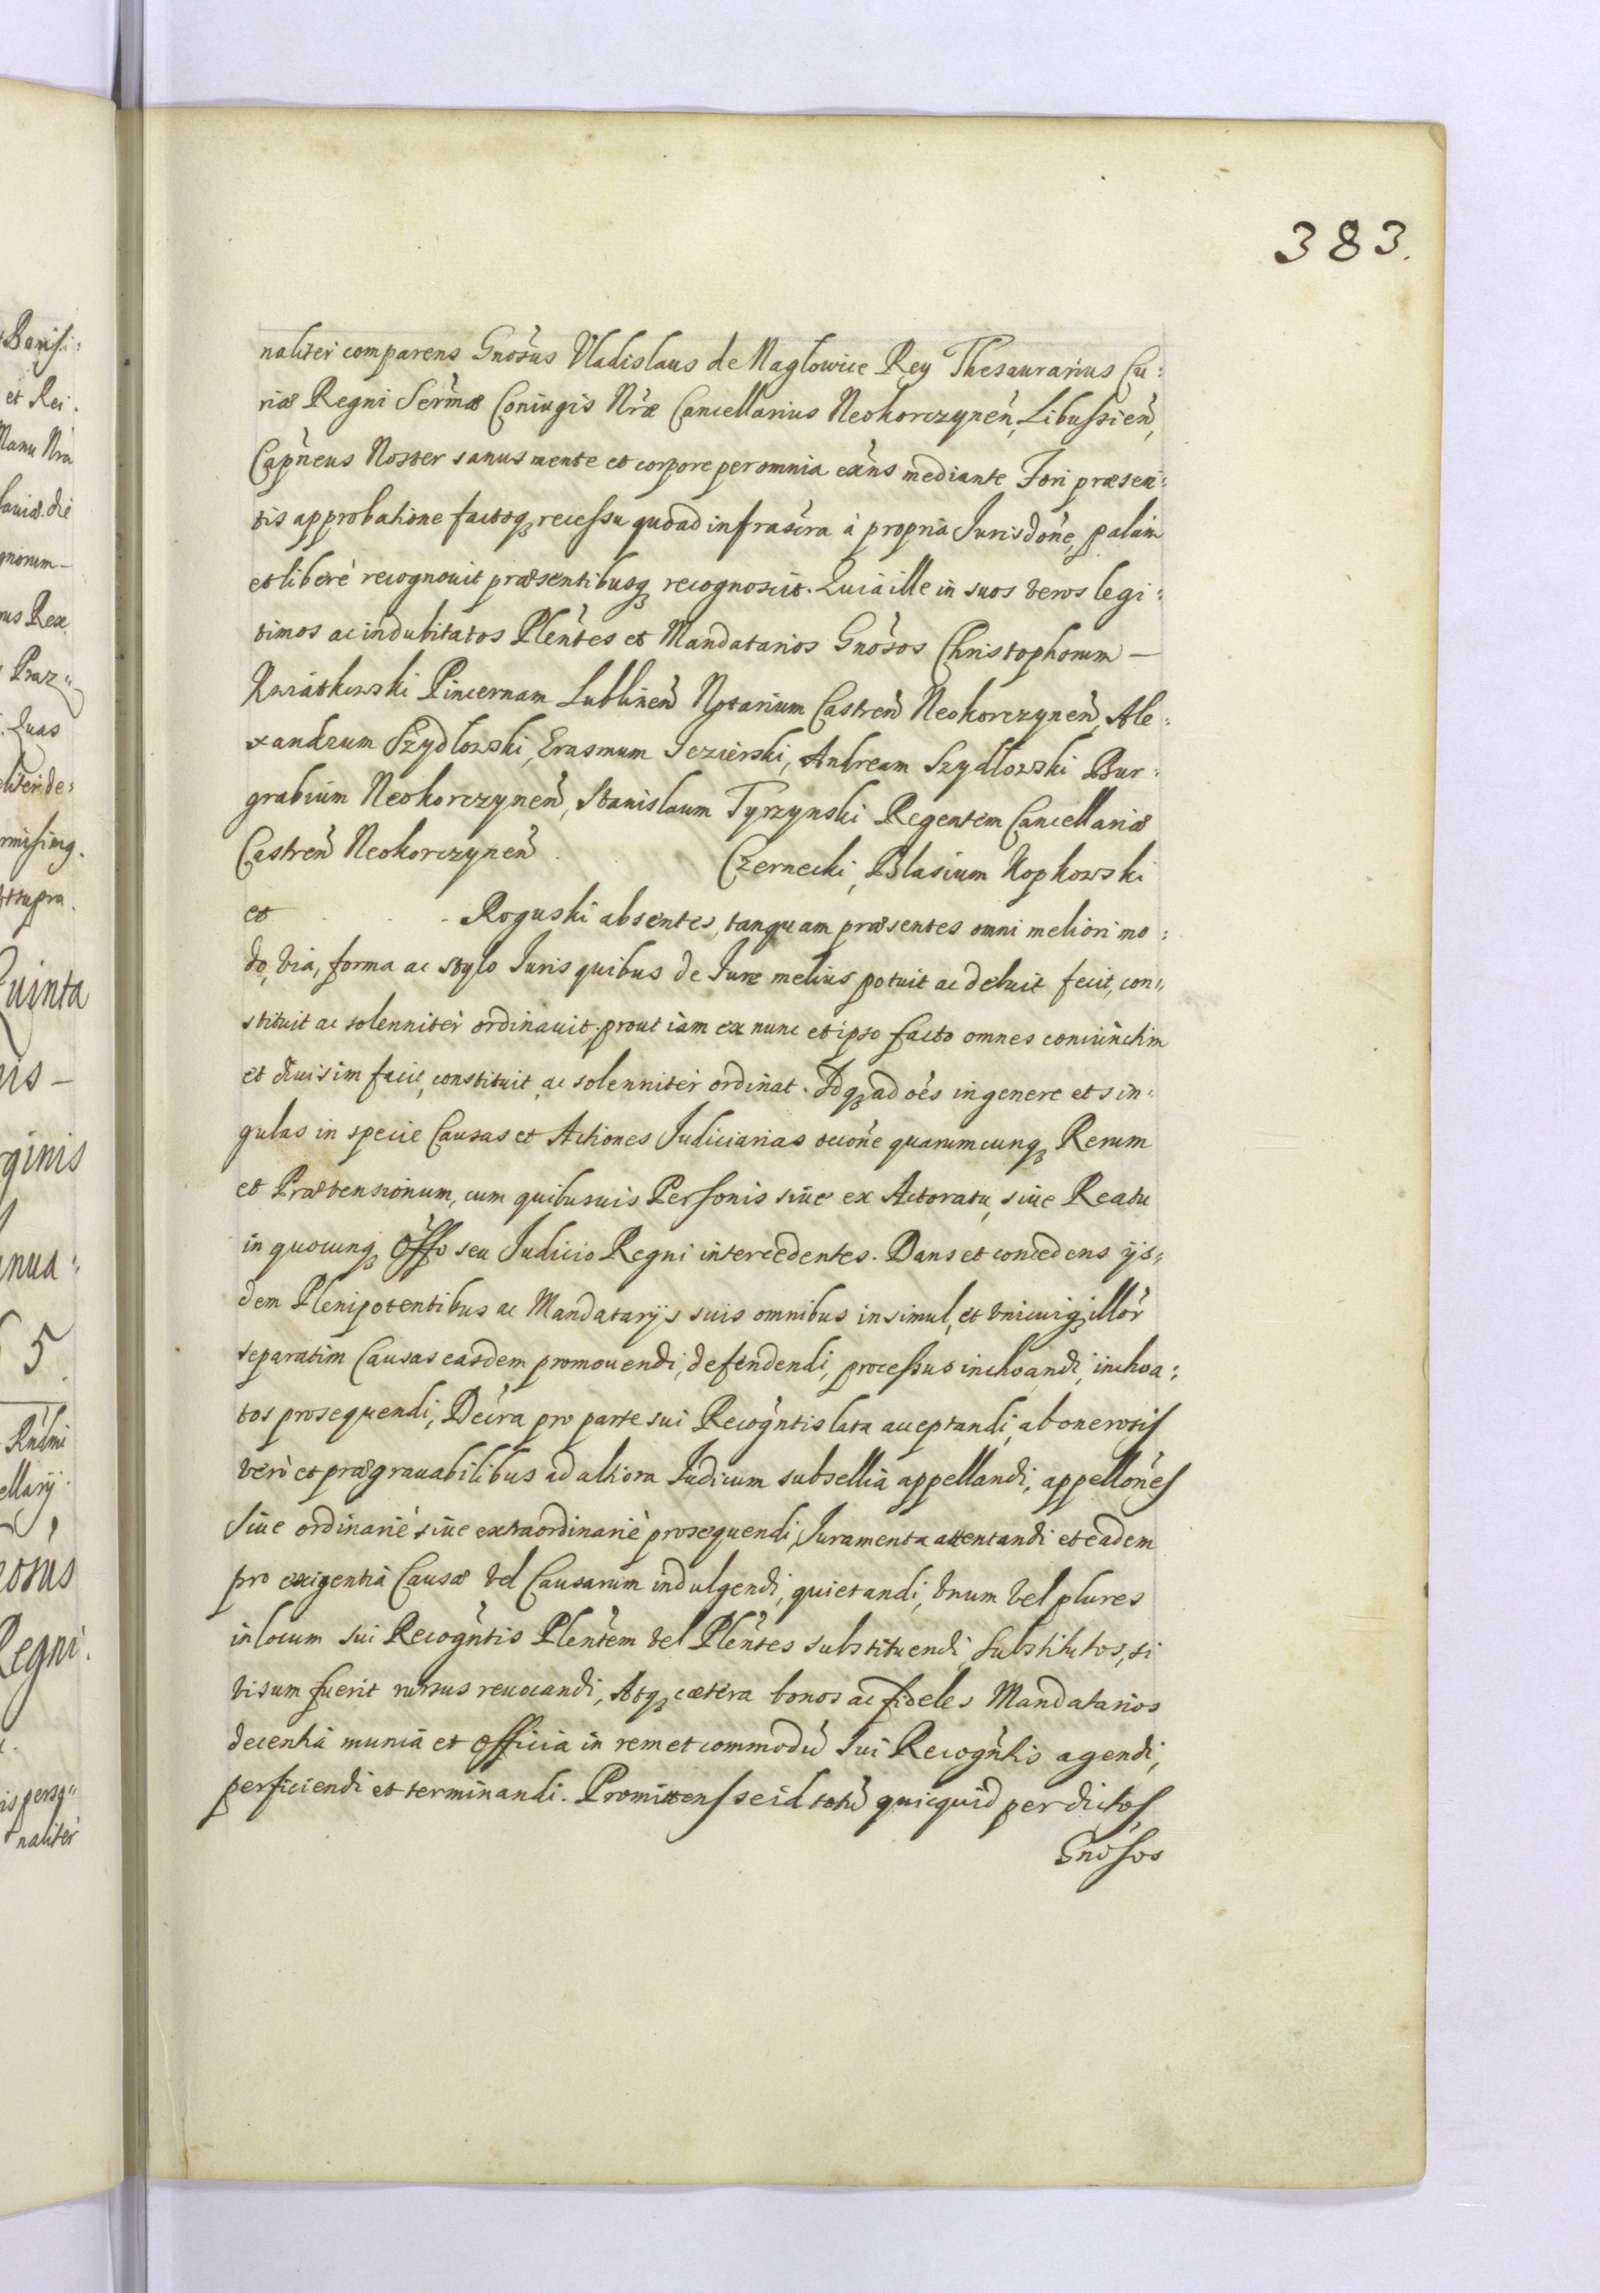 383.
naliter comparens Gnosus Vladislaus de Naglowice Rey Thesaurarius Cu:
riæ Regni Sermæ Coniugis Nræ Cancellarius Neokorczynen, Libuszien,
Capneus Noster sanus mente et corpore per omnia exns mediante Fori præsen:
tis approbatione factoq recessu quoad infrascra à propria Jurisdone, palam
et liberè recognouit præsentibusq recognoscit. Quia ille in suos veros legi:
timos ac indubitatos Plentes et Mandatarios Gnosos Christophorum —
Kwiatkowski Pincernam Lublinen Notarium Castren Neokorczynen, Ale:
xandrum Szydlowski, Erasmum Jezierski, Andream Szydlowski Bur:
grabium Neokorczynen, Stanislaum Tyrzynski Regentem Cancellariæ
Castren Neokorczynen . Czernecki, Blasium Kopkowski
et . . . Roguski absentes, tanquam præsentes omni meliori mo:
do, via, forma ac stylo Juris quibus de Jure melius potuit ac debuit fecit, con:
stituit ac solenniter ordinauit, prout iam ex nunc et ipso facto omnes coniunctim
et diuisim facit, constituit, ac solenniter ordinat. Idq ad oes in genere et sin:
gulas in specie Causas et Actiones Judiciarias occone quarumcunq Rerum
et Prætensionum, cum quibusuis Personis siue ex Actoratu, siue Reatu
in quocunq Offo seu Judicio Regni intercedentes. Dans et concedens ijs:
dem Plenipotentibus ac Mandatarijs suis omnibus insimul, et vnicuiq illor
separatim Causas easdem promouendi, defendendi, processus inchoandi, inchoa:
tos prosequendi, Decra pro parte sui Recogntis lata acceptandi, ab onerosis
verò et prægrauabilibus ad altiora Judicum subsellia appellandi, appellones
siue ordinariè siue extraordinariè prosequendi, Juramenta attentandi et eadem
pro exigentia Causæ vel Causarum indulgendi, quietandi, vnum vel plures
in locum sui Recogntis Plentem vel Plentes substituendi, substitutos, si
visum fuerit rursus reuocandi, Atq cætera bonos ac fideles Mandatarios
decentia munia et officia in rem et commodu sui Recogntis agendi,
perficiendi et terminandi. Promittens se id totu quicquid per dictos
Gnosos